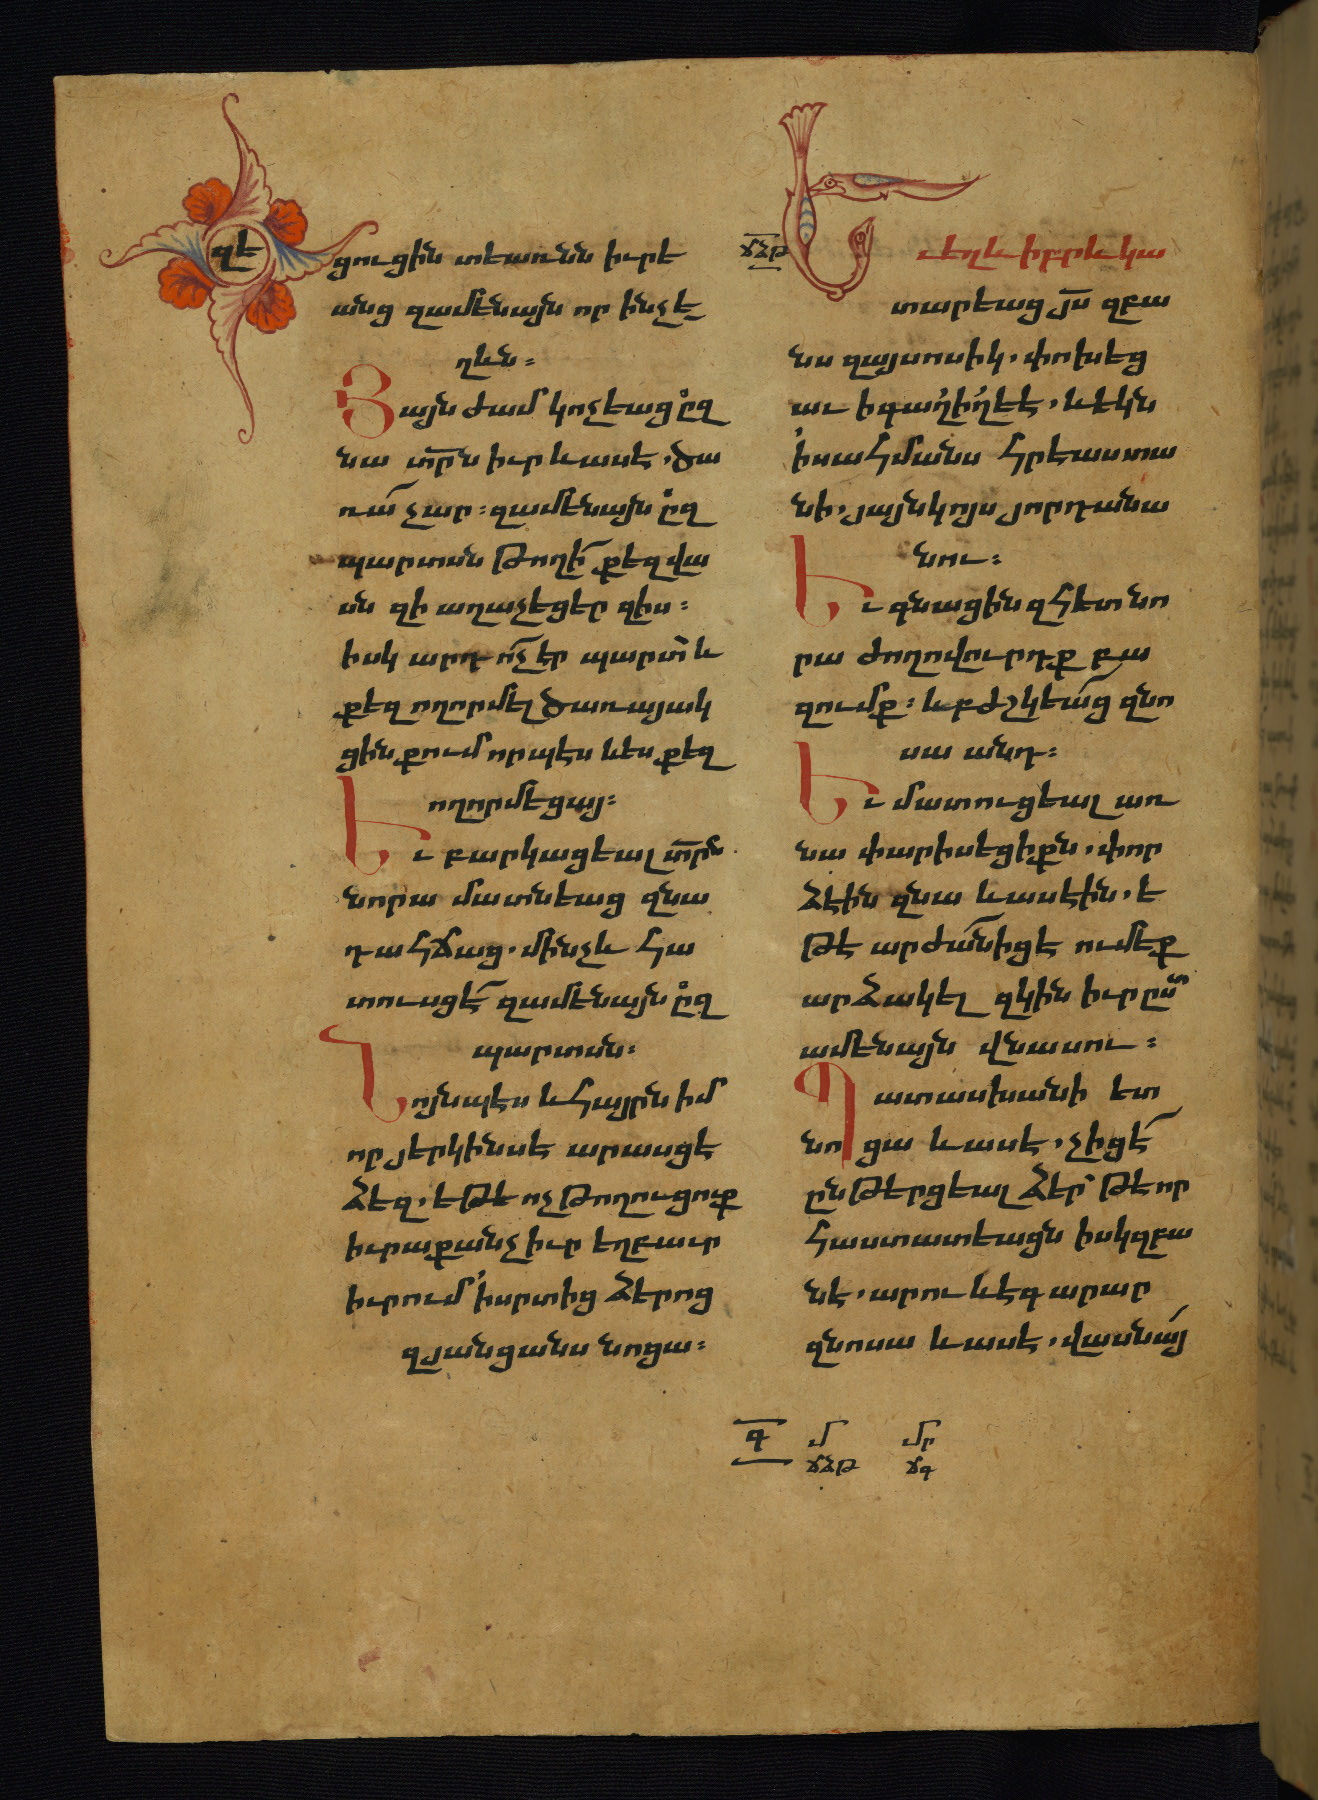 զէ
ցուցին տէառնն իւրե
անց զամենայն որ ինչ ե
ղևն :
Յայնժամ կոչեաց ըզ
նա տրն իւր և ասէ, ծա
ռա չար : զամենայն ըզ
պարտսն թողի քեզ վա
սն զի աղաչեցեր զիս :
իսկ արդ ոչ էր պարտ և
քեզ ողորմել ծառայակ
ցին քում որպէս և ես քեզ
ողորմեցայ :
Եւ բարկացեալ տրն
նորա մատնեաց զնա
դահճաց. մինչև հա
տուսցէ զամենայն ըզ
պարտսն :
Նոյնպէս և հայրն իմ
որ յերկինսէ արասցէ
ձեզ. եթե ոչ թողուցուք
իւրաքանչիւր եղբաւր
իւրում ի սրտից ձերոց
զյանցանս նոցա :
ճձթ
Եւ եղև իբրև կա
տարեաց յս զբա
նս զայսոսիկ. փոխեց
աւ ի գաղիղեէ, և եկն
ի սահմանս հրէաստա
նի, յայնկոյս յորդանա
նու :
Եւ գնացին զհետ նո
րա ժողովուրդք բա
զումք : և բժշկեաց զնո
սա անդ :
Եւ մատուցեալ առ
նա փարիսեցիքն, փոր
ձէին զնա և ասէին. ե
թե արժանիցէ ումեք
արձակել զկին իւր ըստ
ամենայն վնասու :
Պատասխանի ետ
նոցա և ասէ, չիցէ
ընթերցեալ ձեր թե որ
հաստատեացն իսկզբա
նէ, արու և էգ արար
զնոսա և ասէ, վասն այ
գ մ մր
ճձթ ճգ